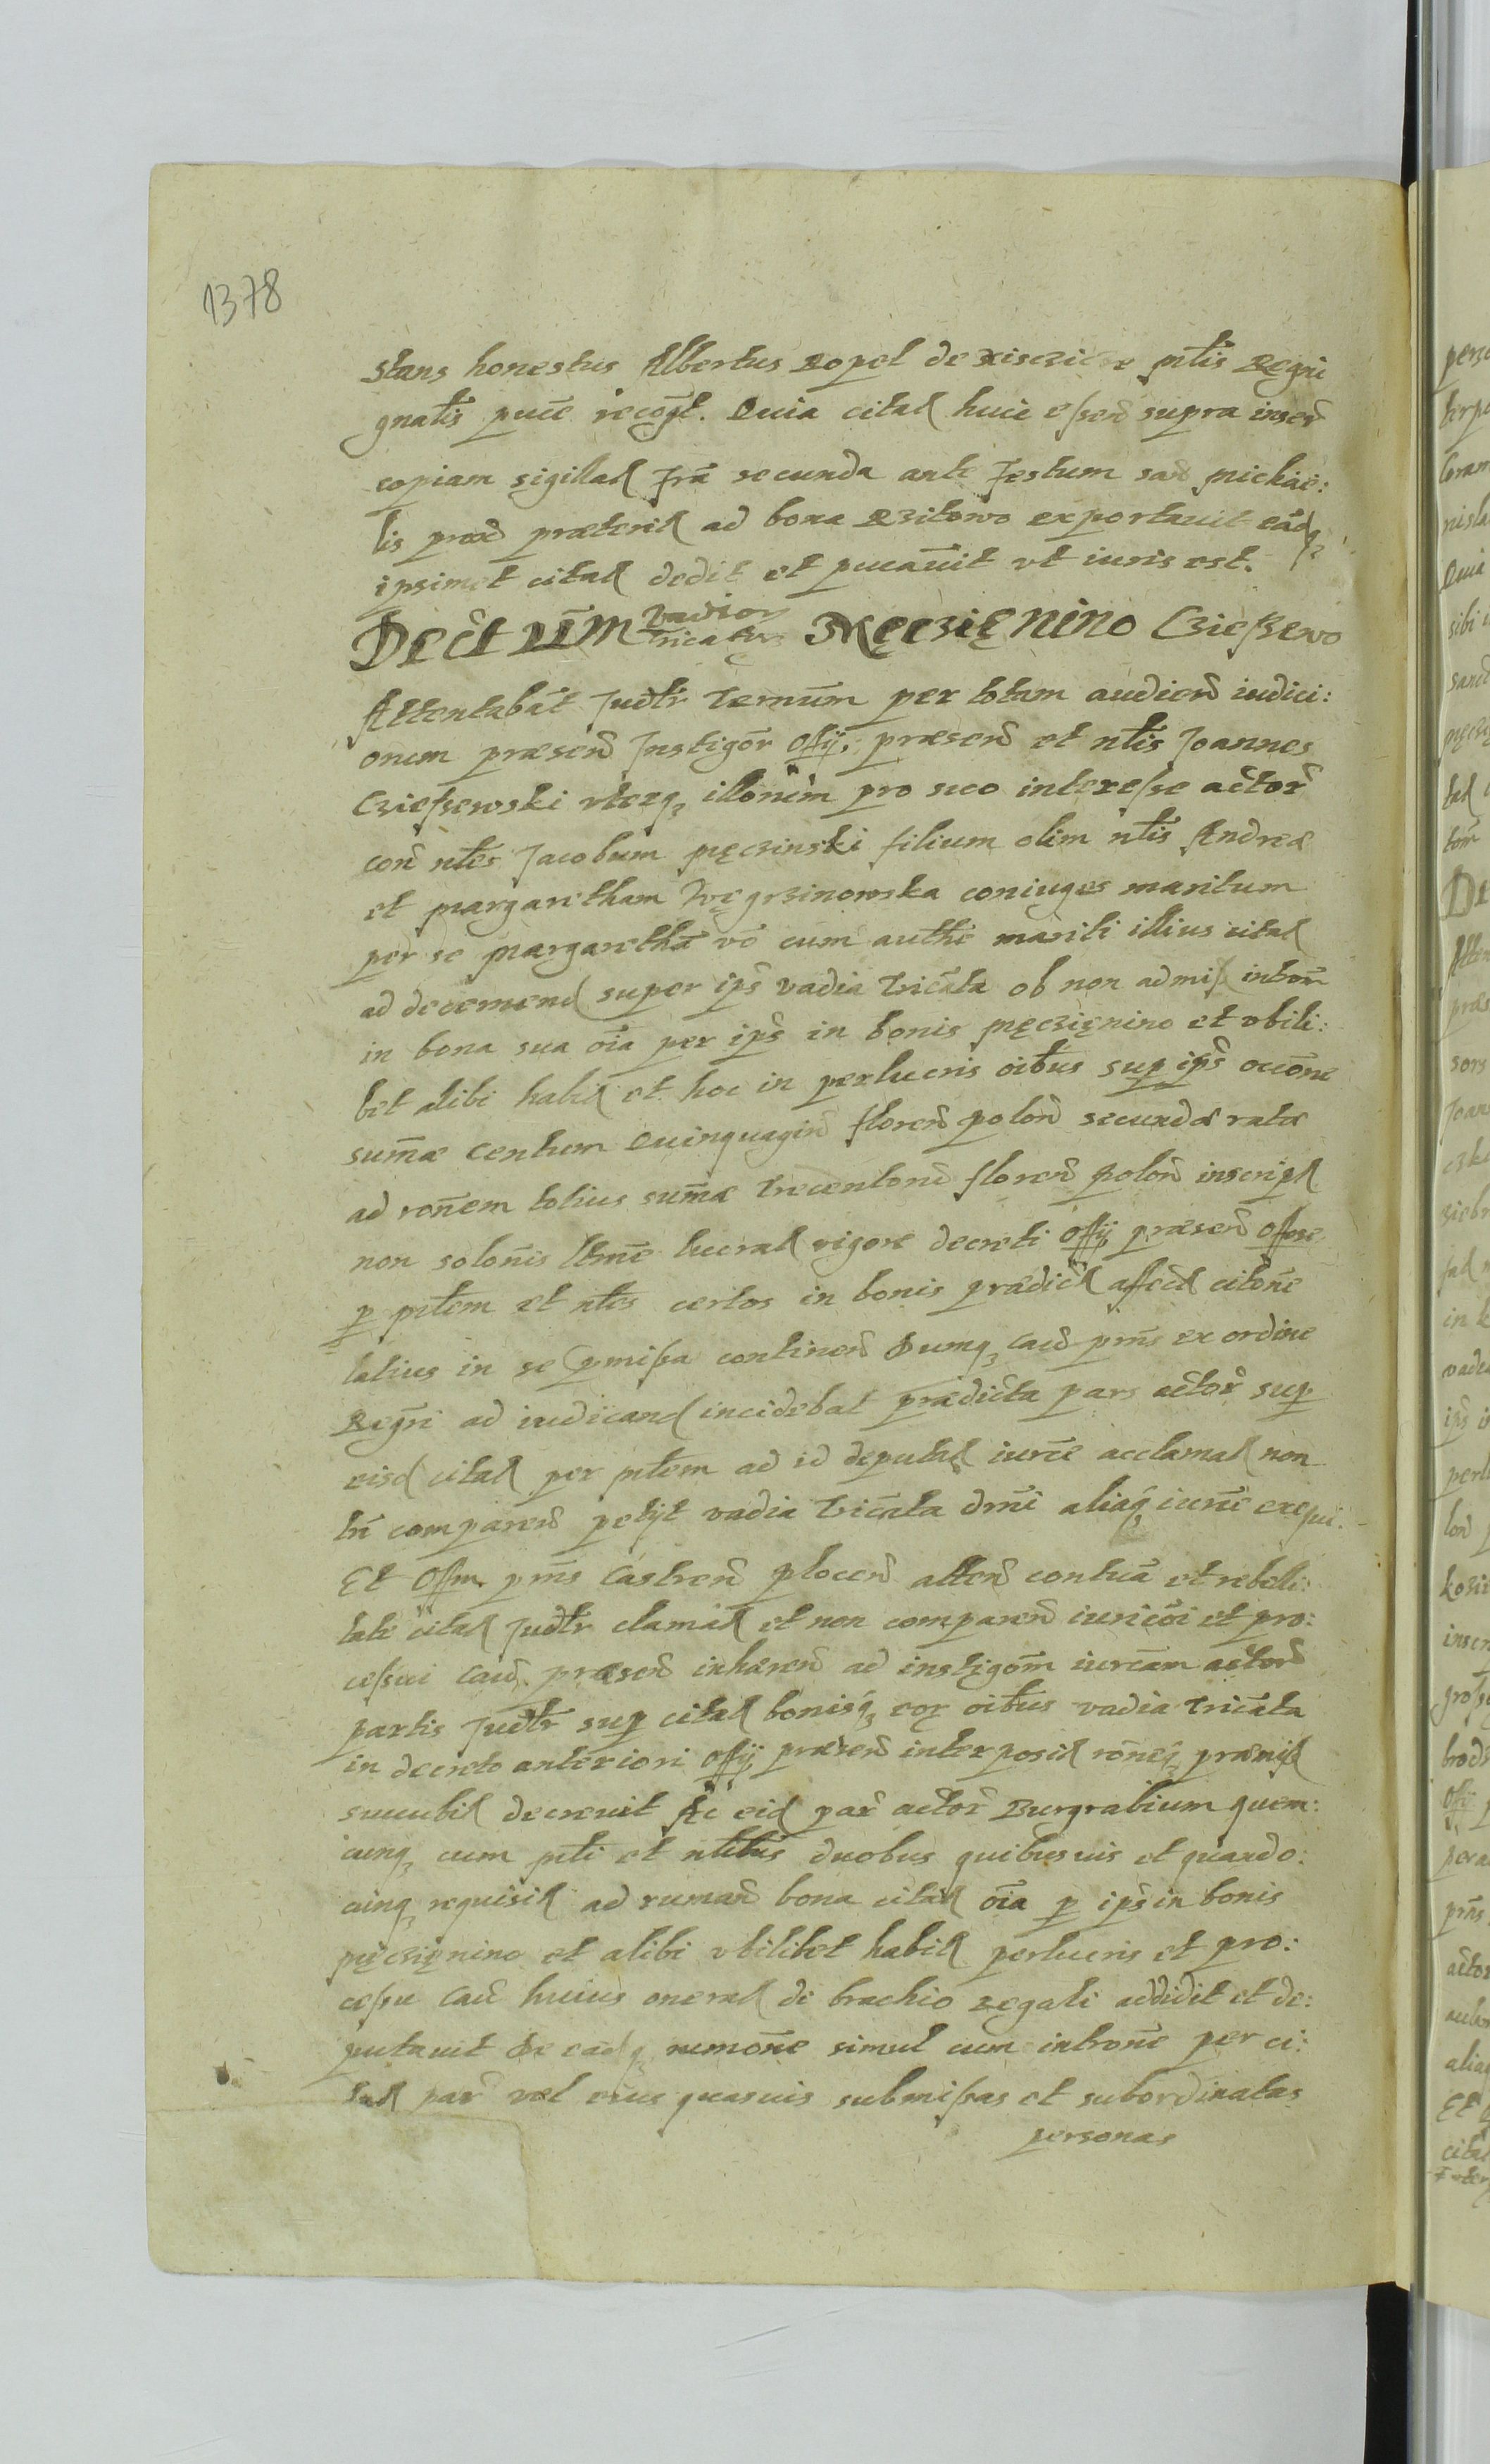 1378
Stans honestus Albertus Ropel de mtis Regni
gnalis pucē recogt. Quia citaɫ huic essen supra inser
copiam sigillaɫ fra secunda ante Festum san Michae:
lis prox præteriɫ ad bona Rzitowo exportauit eadq
ipsimet citaɫ dedit et pucauit vt iuris est.
Decretum vadior tricatur Męczięnino Czieszewo
Attentabat Judtr Ternum per totam audien iudici:
onem præsen Instigor Offij præsen et nlis Joannes
Czieszewski vterq illorum pro suo interesse actor
con nlem Jacobum Męczinski filium olim nlis Andreæ
et Margaretham Węgrzinowska coniuges maritum
per se Margaretha vo cum authe mariti illius citaɫ
ad decernenɗ super ips vadia tricata ob non admiss introm
in bona sua oia per ips in bonis Męczięnino et vbili:
bet alibi habiɫ et hoc in perlucris oibus sup ips occone
summæ Centum Quinquagin floren polon secundæ ratæ
ad ronem totius summæ Trecentorum floren polon inscripɫ
non solonis ltme lucraɫ vigore decreti Offij præsen Offose
p mtlem et nles certos in bonis prædicɫ affecɫ citone
latius in se pmissa continen Dumq caus pns ex ordine
Regri ad iudicanɗ incidebat prædicta pars actor sup
eisɗ citaɫ per mtlem ad id deputaɫ iurce acclamaɫ non
tn comparen petijt vadia tricata drni aliaq iurce exequi.
Et Offm pns Castren plocen atten contuā et rebelli:
tate citaɫ Judtr clamaɫ et non comparen iuriconi et pro:
cessui caus præsen inhæren ad instigom iurcam actorn
partis Judtr sup citaɫ bonisq eor oibus vadia tricata
in decreto anteriori Offij præsen interposiɫ roneq præmiss
succubiɫ decreuit Ac eiɗ par actor Burgrabium quem:
cunq cum mtli et nlibus duobus quibusuis et quando:
cunq requisiɫ ad ruman bona citaɫ oia p ips in bonis
Męczięnino et alibi vbilibet habiɫ perlucris et pro:
cessu caus huius oneraɫ de brachio Regali addidit et de:
putauit De eadq rumone simul cum introne per ci:
taɫ par vel eius quasuis submissas et subordinatas
personas